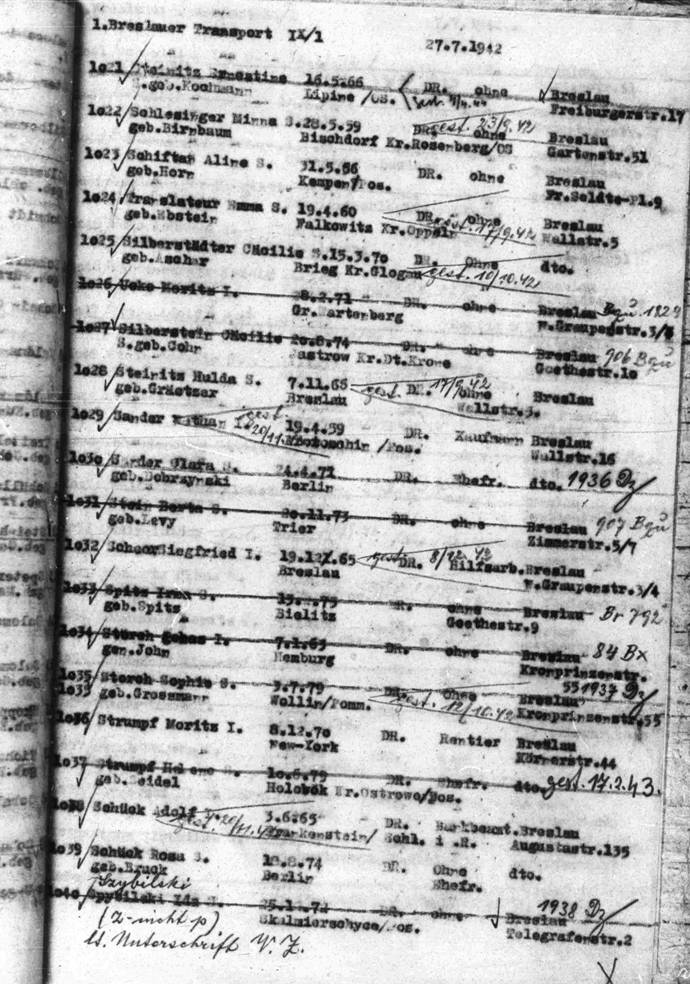 1.Breslauer Transport IX/1
27.7.1942
1o21 Steinitz Ernestine 16.5.66 DR. ohne Breslau
S.geb.Kochmann Lipine /OS. Freiburgerstr.17
1o22 Schlesinger Minna S.28.5.59 DR. ohne gest. 23/9.42 Breslau
geb.Birnbaum Bischdorf Kr.Rosenberg/OS Gartenstr.51
1o23 Schiftan Aline S. 31.5.66 DR. ohne Breslau
geb.Horn Kempen/Pos. Fr.Seldte-Pl.9
1o24 Translateur Emma S. 19.4.60 DR. ohne Breslau
geb.Ebstein Falkowitz Kr.Oppeln gest. 17/9.42 Wallstr.5
1o25 Silberstädter Cäcilie S.15.3.70 DR. Ohne dto.
geb.Ascher Brieg Kr.Glogau gest. 10/10.42
1o26 Ucko Moritz I. 28.2.71 DR. ohne Breslau
Gr.Wartenberg W.Graupenstr.3/4
1o27 Silberstein Cäcilie DR. ohne Breslau 906 Bqu
S.geb.Cohn Jastrow Kr.Dt.Krone Goethestr.10
1o28 Steinitz Hulda S. 7.11.66 gest. 17/9.42 DR. ohne Breslau
geb.Graetzer Breslau Wallstr.3.
1o29 Sander Nathan I. gest. 19.4.59 DR. Kaufmann Breslau
20/11 Krotoschin /Pos. Wallstr.16
1o3o Sander Clara S. 24.4.71 DR. Ehefr. dto. 1936 Dz
geb.Dobrzynski Berlin
1o31 Stein Berta S. 20.11.73 DR. ohne Breslau 907 Bqu
geb.Levy Trier Zimmerstr.5/7
1o32 Siegfried I. 19.12.65 gest. 8/12 42 DR. Hilfsarb.Breslau
Breslau W.Graupenstr.3/4
1o33 Spitz Irma S. DR. ohne Breslau Br 792
geb.Spitz Bielitz Goethestr.9
1o34 Storch I. 7.1.63 DR. ohne Breslau 84 Bx
gen.John Hemburg Kronprinzenstr.
1o35 Storch Sophie S. 3.7.79 DR. ohne 55 1937 Dz
1o35 geb.Grossmann Wollin/Pomm. gest. 12/10.42 Breslau
Kronprinzenstr.55
1o36 Strumpf Moritz I. 8.12.70 DR. Rentier Breslau
New-York Körnerstr.44
1o37 Strumpf Helene S. 10.6.79 DR. Ehefr. dto. gest. 17.2.43.
geb.Seidel Holobok Kr.Ostrowo/Pos.
1o38 Schück Adolf 3.6.65 DR. Bankbeamt.Breslau
gest. Frankenstein/ Schl. i .R. Augustastr.135
1o39 Schück Rosa S. 18.8.74 DR. Ohne dto.
geb.Bruck Berlin Ehefr.
Szybilski
1o4o Spybilski Ida S. DR. ohne 1938 Dz
Breslau
(z-nicht p) Skalmierschyce/Pos. Telegrafenstr.2
lt. Unterschrift V.Z.